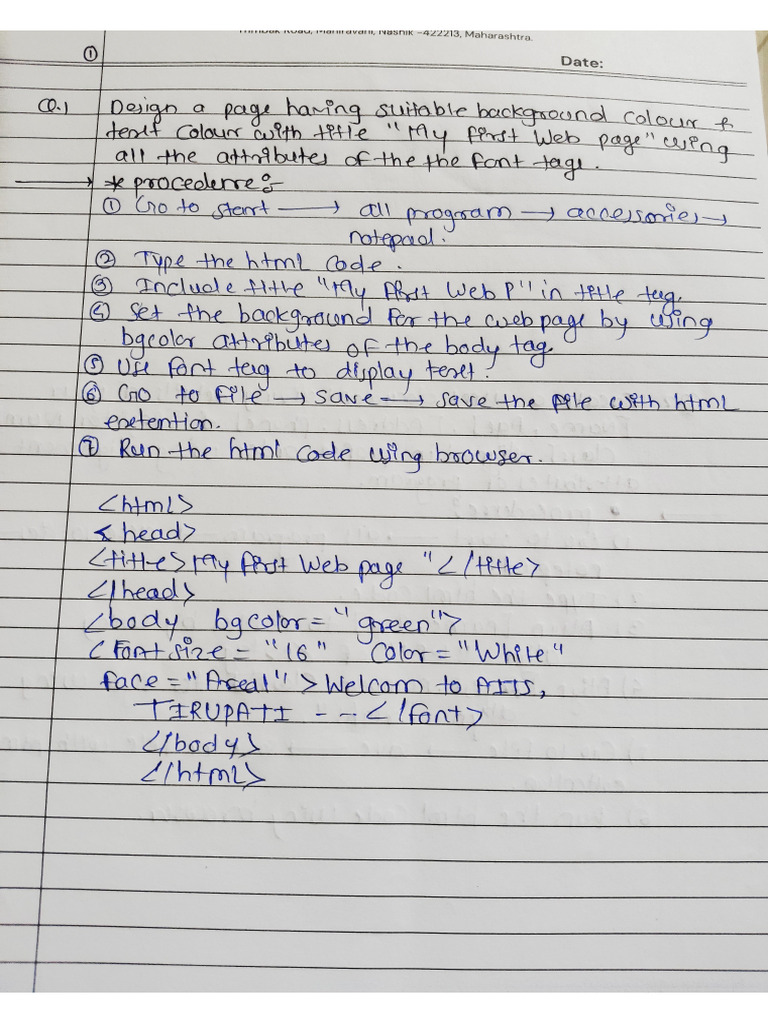 Trimbak Road, Mahiravani, Nashik -422213, Maharashtra.
①
Date:
Q.1 Design a page having suitable background colour &
text colour with title "My first Web page" using
all the attributes of the the font tags.
→ * procederre:-
① Go to start → all program → accessories →
notepad.
② Type the html code.
③ Include title "My first Web P" in title tag.
④ Set the background for the webpage by using
bgcolor attributes of the body tag
⑤ Use font tag to display text.
⑥ Go to file → save → save the file with html
extention.
⑦ Run the html code using browser.
<html>
< head>
<title>My first Web page "</title>
</head>
<body bgcolor= "green">
<Font size = "16" Color = "White"
face = "Areal" > Welcom to AITS,
TIRUPATI - - </font>
</body>
</html>